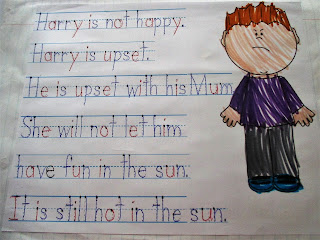 Harry is not happy.
Harry is upset.
He is upset with his Mum
She will not let him
have fun in the sun.
It is still hot in the sun.